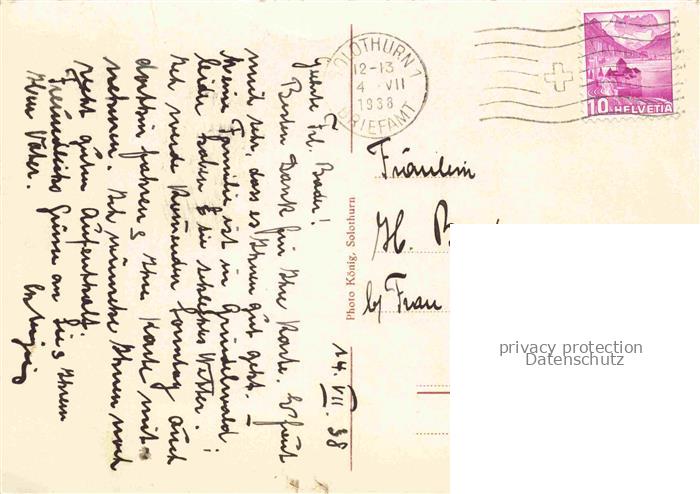 SOLOTHURN 1
12-13
4. VII
1938
BRIEFAMT
10 HELVETIA
Fräulein
H. B
b/ Frau
privacy protection
Datenschutz
Photo König, Solothurn
14. VII. 38
Geehrte Frl. Bader!
Besten Dank für Ihre Karte. Es freut
mich sehr, dass es Ihnen gut geht. –
Meine Familie ist in Grindelwald;
leider haben sie schlechtes Wetter.
Ich werde kommenden Sonntag auch
dorthin fahren & Ihre Karte mit-
nehmen. Ich wünsche Ihnen noch
recht guten Aufenthalt.
Freundliche Grüsse an Sie & Ihren
Vater.